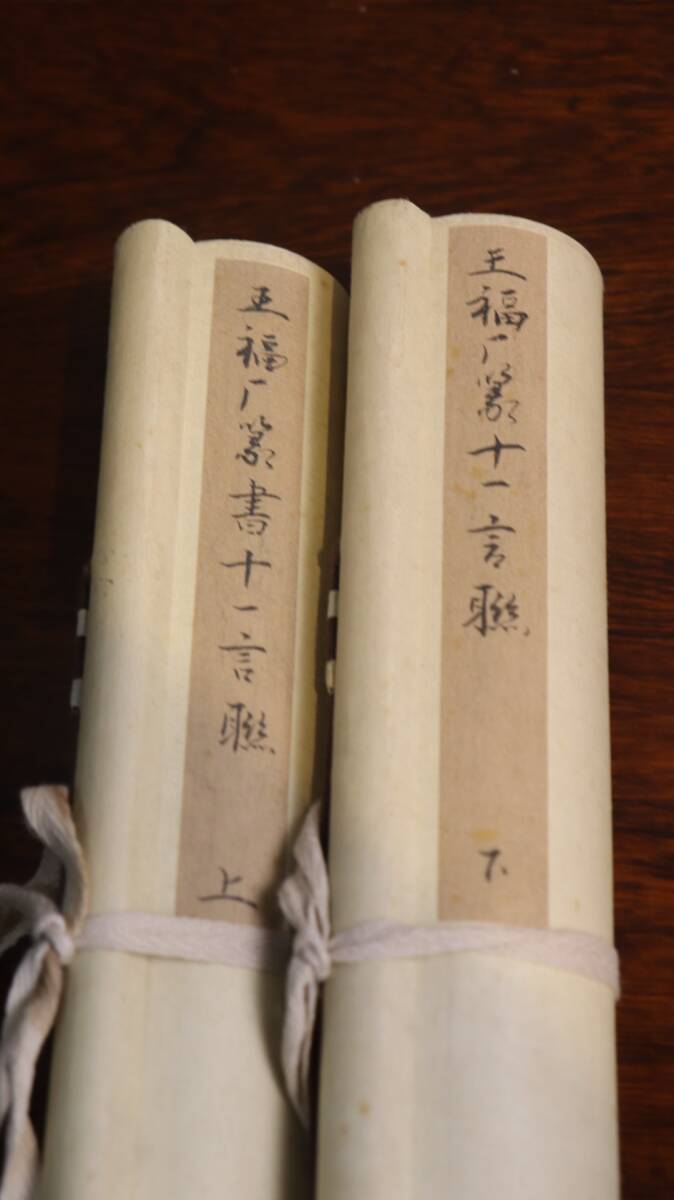 王福厂篆書十一言聯 上
王福厂篆十一言聯 下